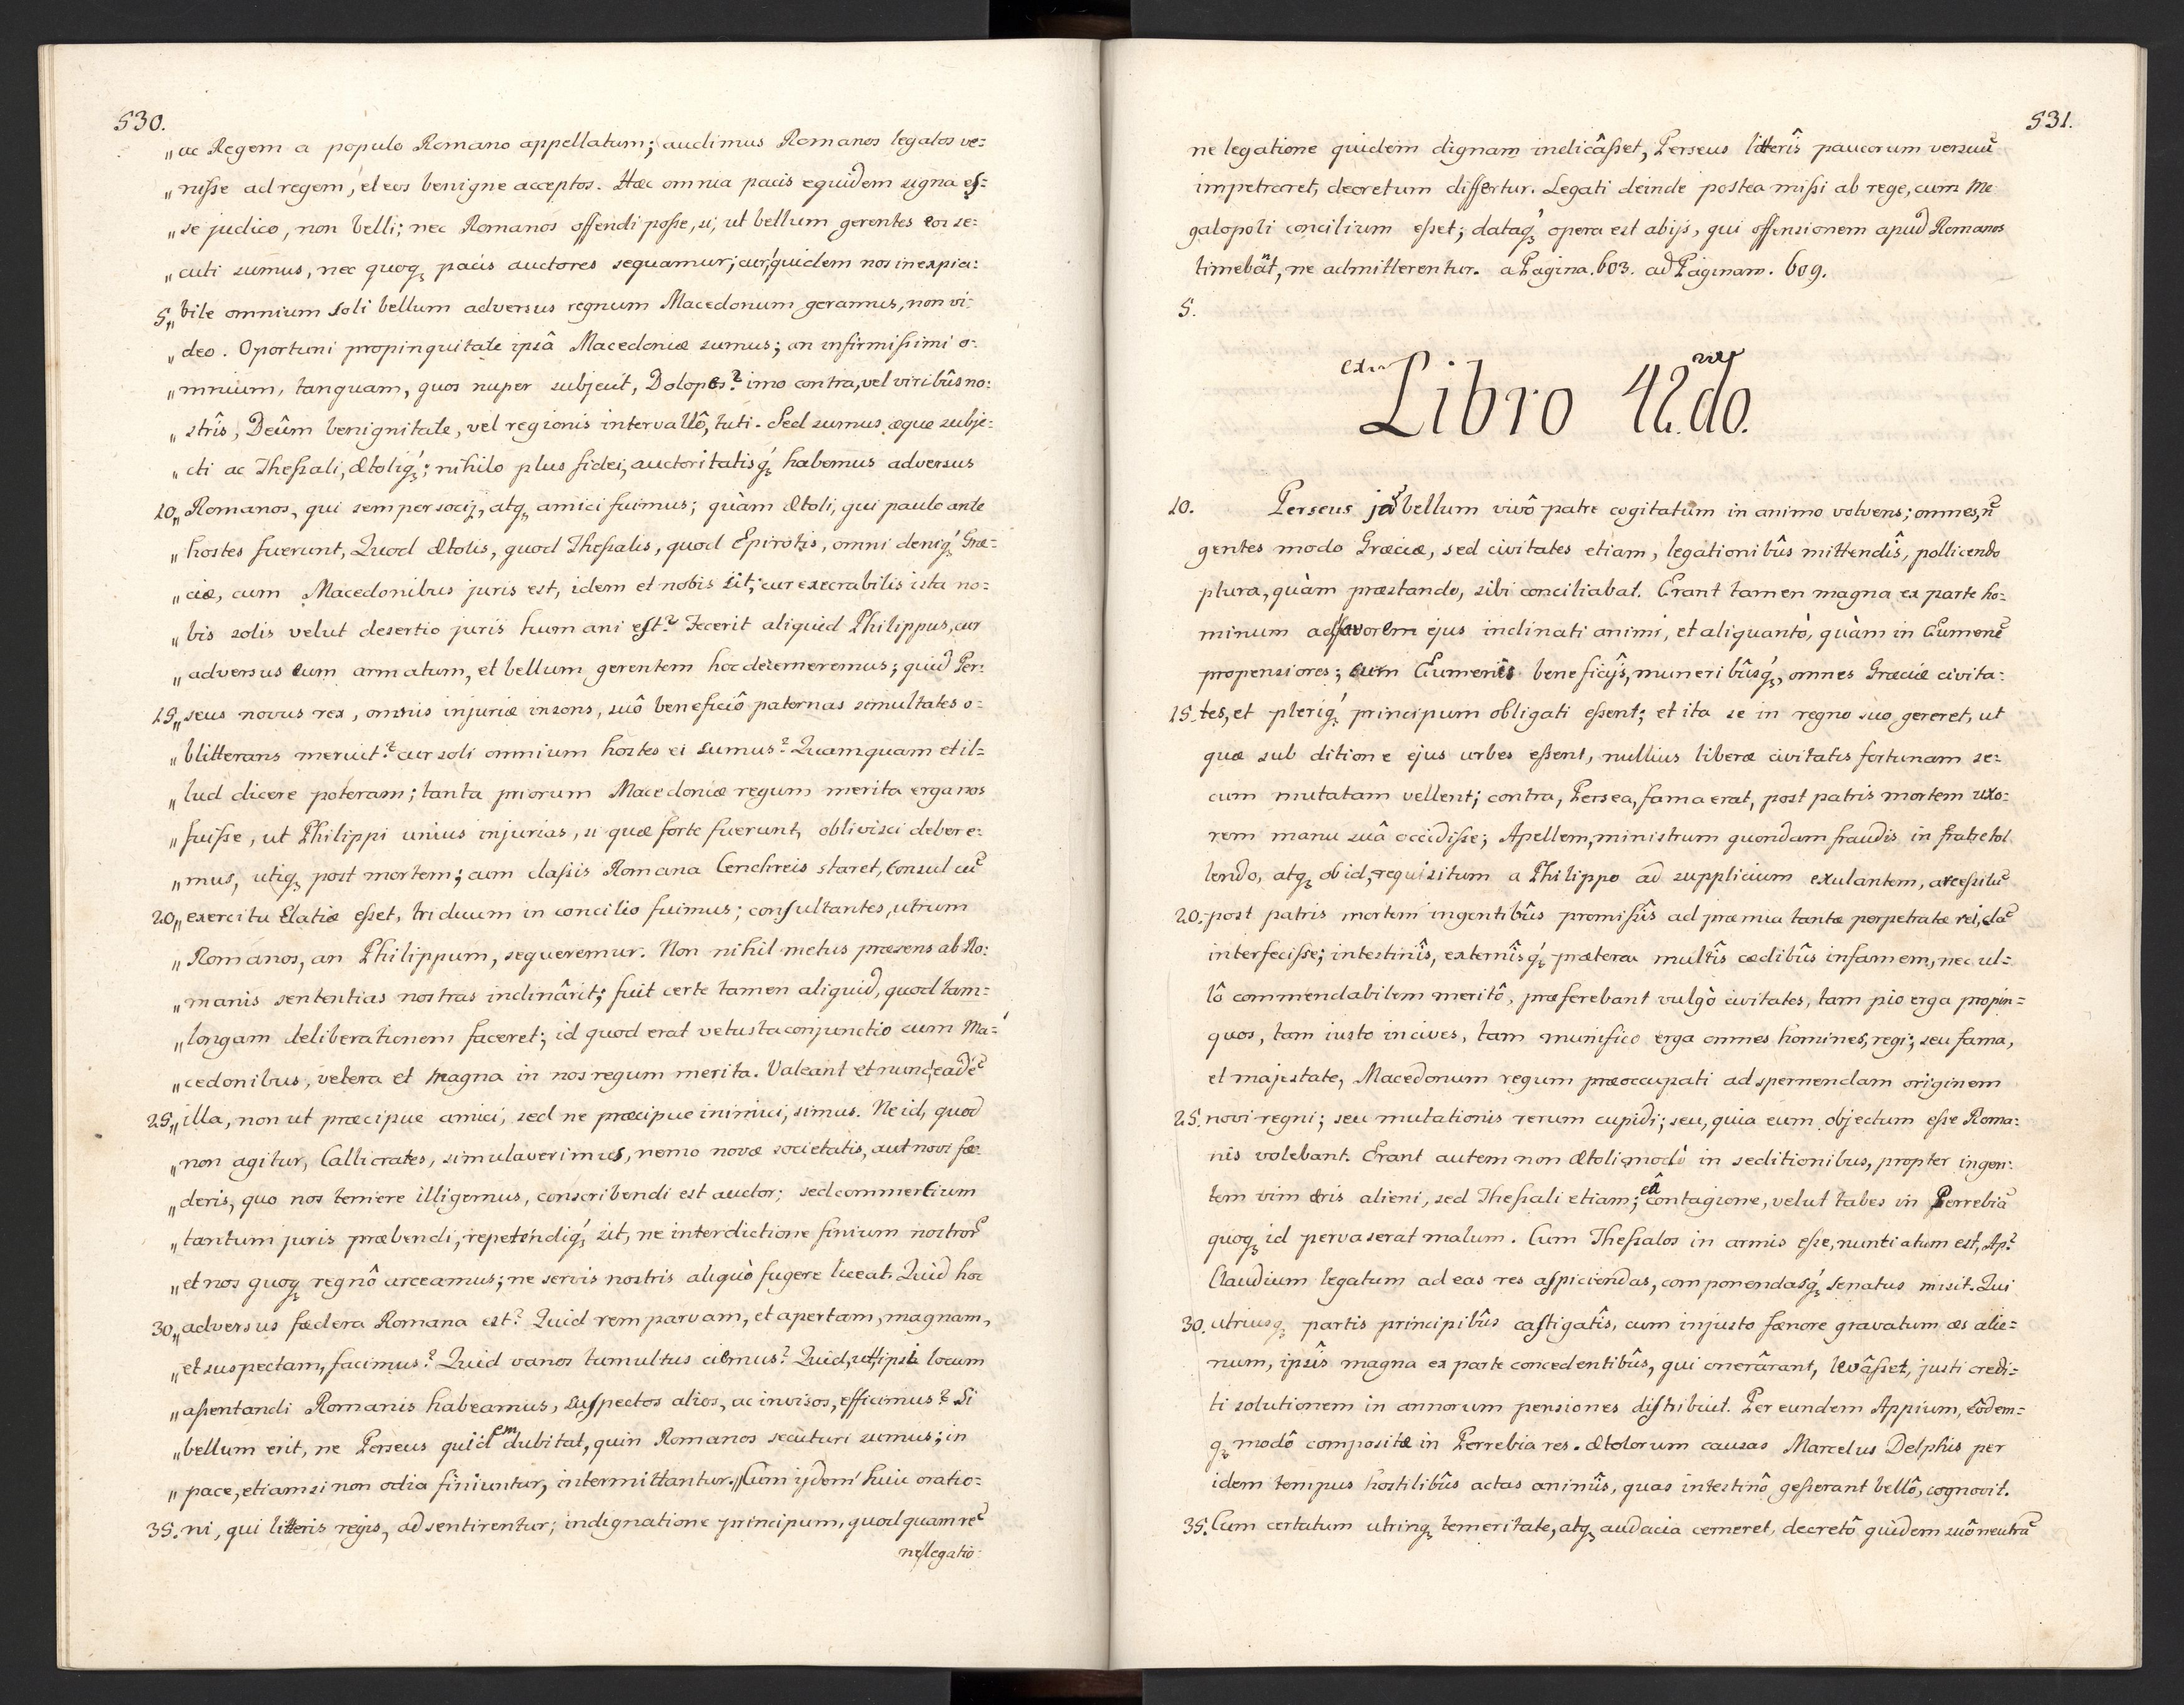 530.
„ac Regem a populo Romano appellatum; audimus Romanos legatos ve=
„nisse ad regem, et eos benigne acceptos. Hæc omnia pacis equidem signa es=
„se judico, non belli; nec Romanos offendi posse, si, ut bellum gerentes eos se=
„cuti sumus, nec quoq; pacis auctores sequamur; cur, quidem nos inexpia=
5. „bile omnium soli bellum adversus regnum Macedonum geramus, non vi=
„deo. Oportuni propinquitate ipsâ Macedoniæ sumus; an infirmissimi o=
„mnium, tanquam, quos nuper subjecit, Dolopes? imo contra, vel viribûs no=
„strîs, Deûm benignitate, vel regionis intervallô, tuti. Sed sumus æque subje=
„cti ac Thessali, Ætoliq́;; nihilo plus fidei, auctoritatisq́; habemus adversus
10. „Romanos, qui semper socij, atq; amici fuimus; quàm Ætoli, qui paulo ante
„hostes fuerunt, Quod Ætolis, quod Thessalis, quod Epirotis, omni deniq́; Græ=
„ciæ, cum Macedonibus juris est, idem et nobis sit; cur execrabilis ista no=
„bis solis velut desertio juris humani est? Fecerit aliquid Philippus, cur
„adversus eum armatum, et bellum gerentem hoc decerneremus; quid Per=
15. „seus novus rex, omnis injuriæ insons, suô beneficiô paternas simultates o=
„blitterans meruit? cur soli omnium hostes ei sumus? Quamquam et il=
„lud dicere poteram; tanta priorum Macedoniæ regum merita erga nos
„fuisse, ut Philippi unius injurias, si quæ forte fuerunt, oblivisci debere=
„mus, utiq; post mortem; cum classis Romana Cenchreis staret, Consul cũ
20. „exercitu Elatiæ esset, triduum in concilio fuimus; consultantes, utrum
„Romanos, an Philippum, sequeremur. Non nihil metus præsens ab Ro=
„manis sententias nostras inclinârit; fuit certe tamen aliquid, quod tam=
„longam deliberationem faceret; id quod erat vetusta conjunctio cum Ma=
„cedonibus, vetera et magna in nos regum merita. Valeant et nunc, eadẽ
25. „illa, non ut præcipue amici, sed ne præcipue inimici, simus. Ne id, quod
„non agitur, Callicrates, simulaverimus, nemo novæ societatis, aut novi fœ=
„deris, quo nos temere illigemus, conscribendi est auctor; sed commercium
„tantum juris præbendi, repetendiq́; sit, ne interdictione finium nostrorũ
„et nos quoq; regnô arceamus; ne servis nostris aliquò fugere liceat. Quid hoc
30. „adversus fœdera Romana est? Quid rem parvam, et apertam, magnam,
„et suspectam, facimus? Quid vanos tumultus ciemus? Quid, ut ipsi locum
„assentandi Romanis habeamus, suspectos alios, ac invisos, efficimus? Si
„bellum erit, ne Perseus quidem dubitat, quin Romanos secuturi sumus; in
„pace, etiamsi non odia finiuntur, intermittantur.„ Cum ijdem huic oratio=
35. ni, qui litteris regis, adsentirentur; indignatione principum, quod quam rẽ
ne legatio=
531.
ne legatione quidem dignam indicâsset, Perseus litterîs paucorum versuũ
impetraret, decretum differtur. Legati deinde postea missi ab rege, cum Me=
galopoli concilium esset; dataq́; opera est ab ijs, qui offensionem apud Romanos
timebãt, ne admitterentur. a Pagina. 603. ad Paginam. 609.
5.
ex
Libro 42.do.
10. Perseus jã bellum vivô patre cogitatum in animo volvens; omnes, ñ
gentes modo Græciæ, sed civitates etiam, legationibûs mittendîs, pollicendo
plura, quàm præstando, sibi conciliabat. Erant tamen magna ex parte ho=
minum ad favorem ejus inclinati animi, et aliquantò, quàm in Eumenẽ
propensiores; cum Eumenis beneficijs, muneribûsq́;, omnes Græciæ civita=
15. tes, et pleriq́; principum obligati essent; et ita se in regno suo gereret, ut
quæ sub ditione ejus urbes essent, nullius liberæ civitatis fortunam se=
cum mutatam vellent; contra, Persea, fama erat, post patris mortem uxo=
rem manu suâ occidisse; Apellem, ministrum quondam fraudis in fratre tol=
lendo, atq; ob id, requisitum a Philippo ad supplicium exulantem, arcessitũ
20. post patris mortem ingentibûs promissîs ad præmia tantæ perpetratæ rei, clã
interfecisse; intestinîs, externîsq́; præterea multîs cædibûs infamem, nec ul=
lô commendabilem meritô, præferebant vulgò civitates, tam pio erga propin=
quos, tam iusto in cives, tam munifico erga omnes homines, regi; seu fama,
et majestate, Macedonum regum præoccupati ad spernendam originem
25. novi regni; seu mutationis rerum cupidi; seu, quia eum objectum esse Roma=
nis volebant. Erant autem non Ætoli modò in seditionibus, propter ingen=
tem vim æris alieni, sed Thessali etiam; eâ contagione, velut tabes in Perrebiã
quoq; id pervaserat malum. Cum Thessalos in armis esse, nuntiatum est, Ap.
Claudium legatum ad eas res aspiciendas, componendasq́; Senatus misit. Qui
30. utriusq; partis principibûs castigatîs, cum injusto fœnore gravatum æs alie=
num, ipsîs magna ex parte concedentibûs, qui onerârant, levâsset, justi credi=
ti solutionem in annorum pensiones distribuit. Per eundem Appium, eôdem=
q; modô compositæ in Perrebia res. Ætolorum causas Marcelus Delphis per
idem tempus hostilibûs actas animîs, quas intestinô gesserant bellô, cognovit.
35. Cum certatum utrinq; temeritate, atq; audacia cerneret, decretô quidem suô neutrã